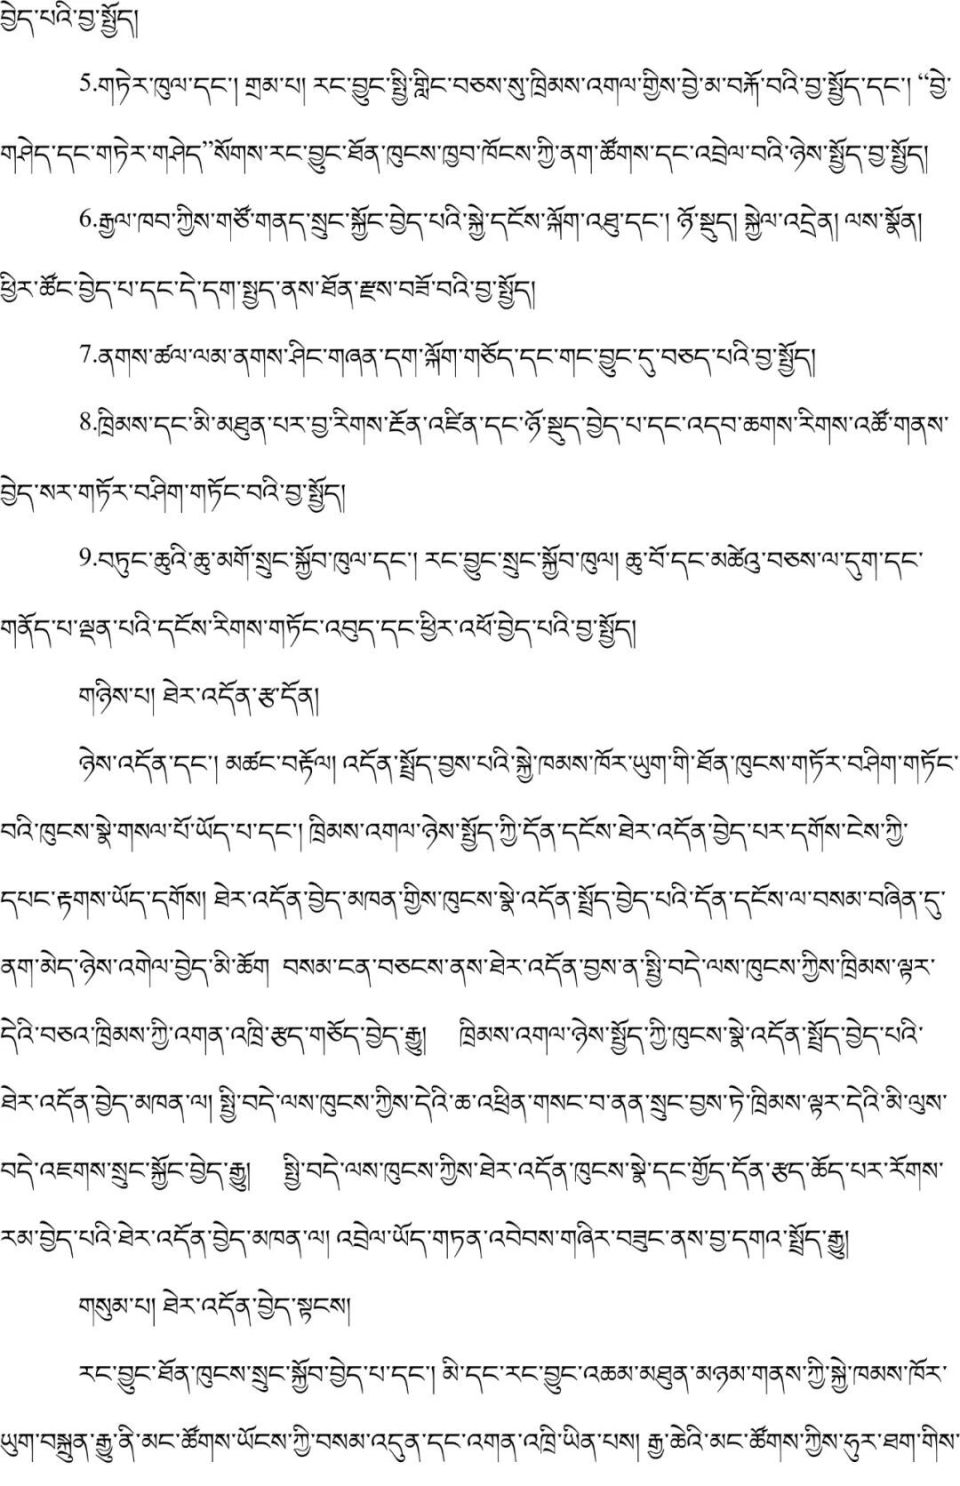 བྱེད་པའི་བྱ་སྤྱོད།
5.གཏེར་ཁུལ་དང་། གྲམ་པ། རང་བྱུང་སྤྱི་གླིང་བཅས་སུ་ཁྲིམས་འགལ་གྱིས་བྱེ་མ་བརྐོ་བའི་བྱ་སྤྱོད་དང་། “བྱེ་
གཤེད་དང་གཏེར་གཤེད”སོགས་རང་བྱུང་ཐོན་ཁུངས་ཁྱབ་ཁོངས་ཀྱི་ནག་ཚོགས་དང་འབྲེལ་བའི་ཉེས་སྤྱོད་བྱ་སྤྱོད།
6.རྒྱལ་ཁབ་ཀྱིས་གཙོ་གནད་སྲུང་སྐྱོང་བྱེད་པའི་སྐྱེ་དངོས་ལྐོག་འཐུ་དང་། ཉོ་སྡུད། སྐྱེལ་འདྲེན། ལས་སྣོན།
ཕྱིར་ཚོང་བྱེད་པ་དང་དེ་དག་སྤྱད་ནས་ཐོན་རྫས་བཟོ་བའི་བྱ་སྤྱོད།
7.ནགས་ཚལ་ལམ་ནགས་ཤིང་གཞན་དག་ལྐོག་གཅོད་དང་གང་བྱུང་དུ་བཅད་པའི་བྱ་སྤྱོད།
8.ཁྲིམས་དང་མི་མཐུན་པར་བྱ་རིགས་རྔོན་འཛིན་དང་ཉོ་སྡུད་བྱེད་པ་དང་འདབ་ཆགས་རིགས་འཚོ་གནས་
བྱེད་སར་གཏོར་བཤིག་གཏོང་བའི་བྱ་སྤྱོད།
9.བཏུང་ཆུའི་ཆུ་མགོ་སྲུང་སྐྱོབ་ཁུལ་དང་། རང་བྱུང་སྲུང་སྐྱོབ་ཁུལ། ཆུ་བོ་དང་མཚེའུ་བཅས་ལ་དུག་དང་
གནོད་པ་ལྡན་པའི་དངོས་རིགས་གཏོང་འབུད་དང་ཕྱིར་འཕོ་བྱེད་པའི་བྱ་སྤྱོད།
གཉིས་པ། ཐེར་འདོན་རྩ་དོན།
ཉེས་འདོན་དང་། མཚང་བརྟོལ། འདོན་སྤྲོད་བྱས་པའི་སྐྱེ་ཁམས་ཁོར་ཡུག་གི་ཐོན་ཁུངས་གཏོར་བཤིག་གཏོང་
བའི་ཁུངས་སྣེ་གསལ་པོ་ཡོད་པ་དང་། ཁྲིམས་འགལ་ཉེས་སྤྱོད་ཀྱི་དོན་དངོས་ཐེར་འདོན་བྱེད་པར་དགོས་ངེས་ཀྱི་
དཔང་རྟགས་ཡོད་དགོས། ཐེར་འདོན་བྱེད་མཁན་གྱིས་ཁུངས་སྣེ་འདོན་སྤྲོད་བྱེད་པའི་དོན་དངོས་ལ་བསམ་བཞིན་དུ་
ནག་མེད་ཉེས་འགེལ་བྱེད་མི་ཆོག བསམ་ངན་བཅངས་ནས་ཐེར་འདོན་བྱས་ན་སྤྱི་བདེ་ལས་ཁུངས་ཀྱིས་ཁྲིམས་ལྟར་
དེའི་བཅའ་ཁྲིམས་ཀྱི་འགན་འཁྲི་རྩད་གཅོད་བྱེད་རྒྱུ། ཁྲིམས་འགལ་ཉེས་སྤྱོད་ཀྱི་ཁུངས་སྣེ་འདོན་སྤྲོད་བྱེད་པའི་
ཐེར་འདོན་བྱེད་མཁན་ལ། སྤྱི་བདེ་ལས་ཁུངས་ཀྱིས་དེའི་ཆ་འཕྲིན་གསང་བ་ནན་སྲུང་བྱས་ཏེ་ཁྲིམས་ལྟར་དེའི་མི་ལུས་
བདེ་འཇགས་སྲུང་སྐྱོང་བྱེད་རྒྱུ། སྤྱི་བདེ་ལས་ཁུངས་ཀྱིས་ཐེར་འདོན་ཁུངས་སྣེ་དང་གྱོད་དོན་རྩད་ཆོད་པར་རོགས་
རམ་བྱེད་པའི་ཐེར་འདོན་བྱེད་མཁན་ལ། འབྲེལ་ཡོད་གཏན་འབེབས་གཞིར་བཟུང་ནས་བྱ་དགའ་སྤྲོད་རྒྱུ།
གསུམ་པ། ཐེར་འདོན་བྱེད་སྟངས།
རང་བྱུང་ཐོན་ཁུངས་སྲུང་སྐྱོབ་བྱེད་པ་དང་། མི་དང་རང་བྱུང་འཆམ་མཐུན་མཉམ་གནས་ཀྱི་སྐྱེ་ཁམས་ཁོར་
ཡུག་བསྐྲུན་རྒྱུ་ནི་མང་ཚོགས་ཡོངས་ཀྱི་བསམ་འདུན་དང་འགན་འཁྲི་ཡིན་པས། རྒྱ་ཆེའི་མང་ཚོགས་ཀྱིས་ཧུར་ཐག་གིས་